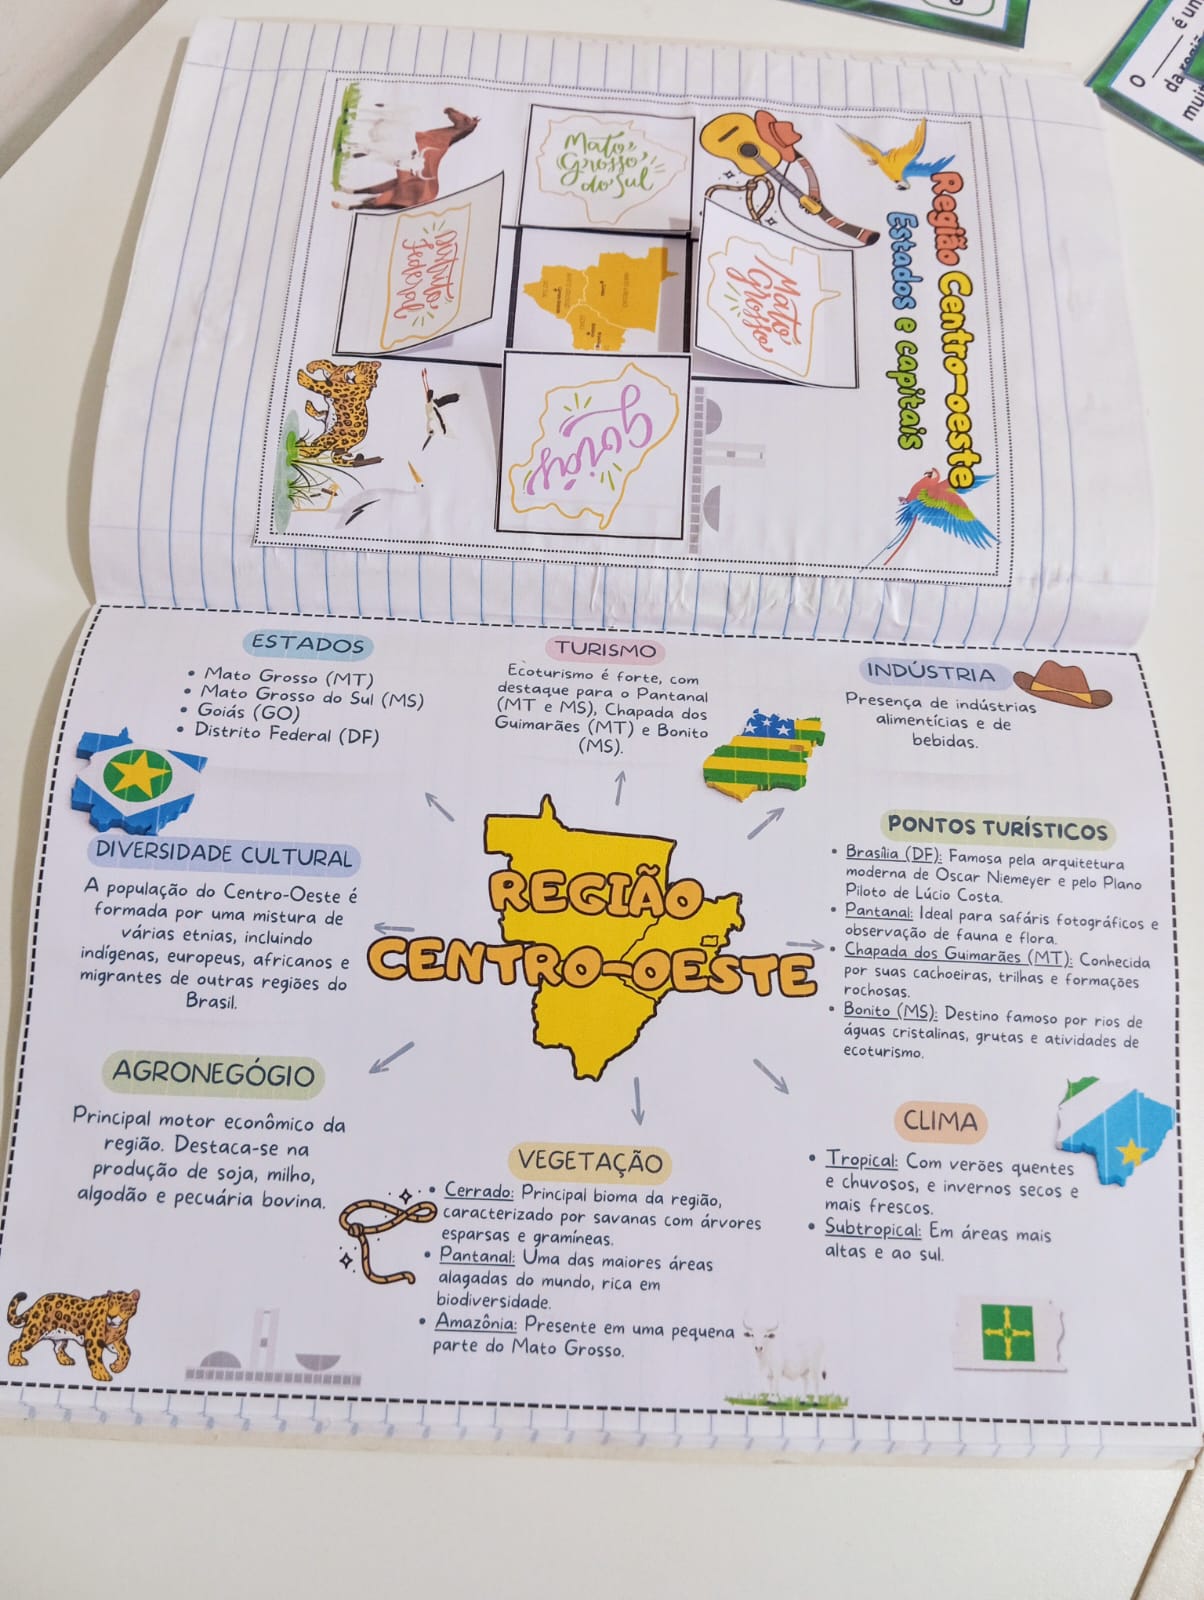 Região Centro-oeste
Estados e capitais
Mato
Grosso
do Sul
Distrito
Federal
Mato
Grosso
Goiás
O ____ é um
da região
ESTADOS
• Mato Grosso (MT)
• Mato Grosso do Sul (MS)
• Goiás (GO)
• Distrito Federal (DF)
TURISMO
Ecoturismo é forte, com
destaque para o Pantanal
(MT e MS), Chapada dos
Guimarães (MT) e Bonito
(MS).
INDÚSTRIA
Presença de indústrias
alimentícias e de
bebidas.
DIVERSIDADE CULTURAL
A população do Centro-Oeste é
formada por uma mistura de
várias etnias, incluindo
indígenas, europeus, africanos e
migrantes de outras regiões do
Brasil.
REGIÃO
CENTRO-OESTE
PONTOS TURÍSTICOS
• Brasília (DF): Famosa pela arquitetura
moderna de Oscar Niemeyer e pelo Plano
Piloto de Lúcio Costa.
• Pantanal: Ideal para safáris fotográficos e
observação de fauna e flora.
• Chapada dos Guimarães (MT): Conhecida
por suas cachoeiras, trilhas e formações
rochosas.
• Bonito (MS): Destino famoso por rios de
águas cristalinas, grutas e atividades de
ecoturismo.
AGRONEGÓGIO
Principal motor econômico da
região. Destaca-se na
produção de soja, milho,
algodão e pecuária bovina.
VEGETAÇÃO
• Cerrado: Principal bioma da região,
caracterizado por savanas com árvores
esparsas e gramíneas.
• Pantanal: Uma das maiores áreas
alagadas do mundo, rica em
biodiversidade.
• Amazônia: Presente em uma pequena
parte do Mato Grosso.
CLIMA
• Tropical: Com verões quentes
e chuvosos, e invernos secos e
mais frescos.
• Subtropical: Em áreas mais
altas e ao sul.